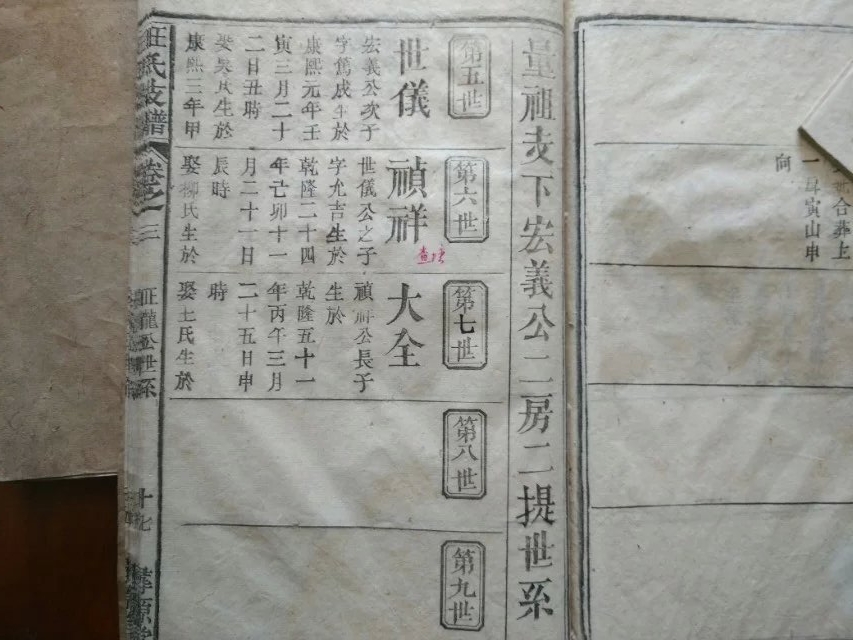 一
寅山申
合葬上
向
量祖支下宏義公二房二提世系
第五世
世儀
宏義公次子
字篤成生於
康熙元年壬
寅三月二十
二日丑時
娶吳氏生於
康熙三年甲
第六世
禎祥
世儀公之子
字允吉生於
乾隆二十四
年己卯十一
月二十一日
辰時
娶柳氏生於
第七世
大全
禎祥公長子
生於
乾隆五十一
年丙午三月
二十五日申
時
娶王氏生於
第八世
第九世
汪氏支譜
卷之三
旺龍公世系
十七